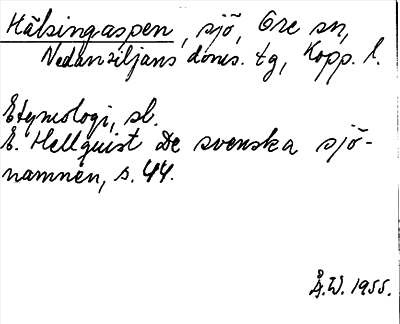 Hälsingaspen, sjö, Ore sn,
Nedansiljans doms. tg, Kopp. l.
Etymologi, sl.
E. Hellquist De svenska sjö-
namnen, s. 44.
Å.W. 1955.